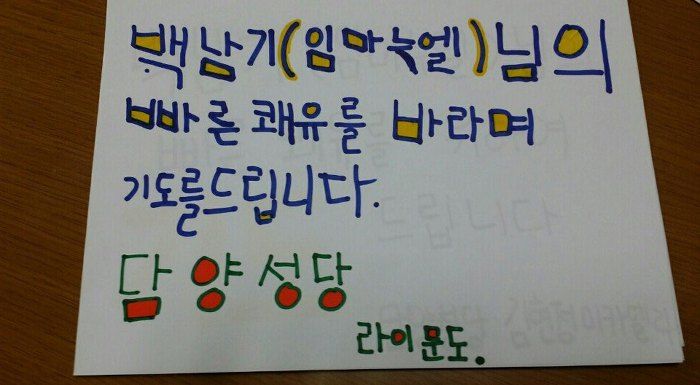 백남기(임마누엘)님의
빠른 쾌유를 바라며
기도를드립니다.
담양성당
라이문도.